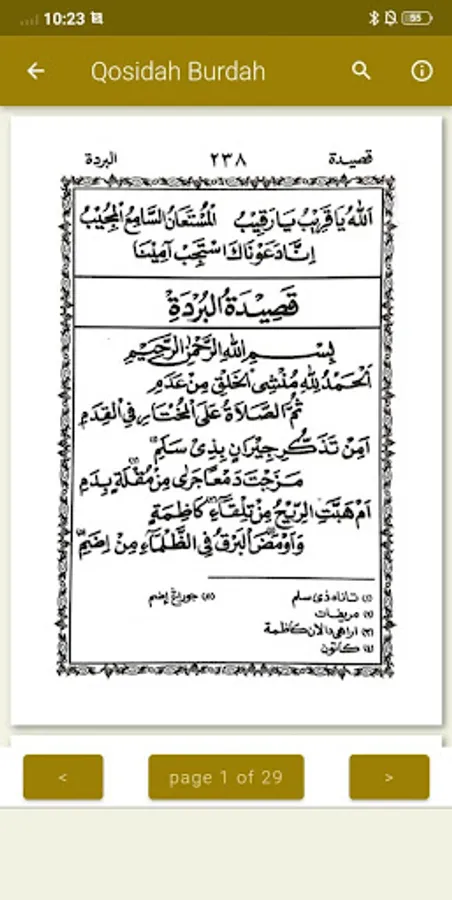 10:23
55
Qosidah Burdah
قصيدة ٢٣٨ البردة
اَللهُ يَا قَرِيْبُ يَا رَقِيْبُ اَلْمُسْتَعَانُ السَّامِعُ الْمُجِيْبُ
اِنَّا دَعَوْنَاكَ اسْتَجِبْ آمِيْنَا
قَصِيْدَةُ الْبُرْدَةِ
بِسْمِ اللهِ الرَّحْمٰنِ الرَّحِيْمِ
اَلْحَمْدُ لِلّٰهِ مُنْشِى الْخَلْقِ مِنْ عَدَمِ
ثُمَّ الصَّلَاةُ عَلَى الْمُخْتَارِ فِى الْقِدَمِ
اَمِنْ تَذَكُّرِ جِيْرَانٍ بِذِىْ سَلَمٍ
مَزَجْتَ دَمْعًا جَرٰى مِنْ مُقْلَةٍ بِدَمِ
اَمْ هَبَّتِ الرِّيْحُ مِنْ تِلْقَاءِ كَاظِمَةٍ
وَاَوْمَضَ الْبَرْقُ فِى الظَّلْمَاءِ مِنْ اِضَمٍ
(١) تاناه ذى سلم (٥) جوراڠ إضم
(٢)
(٣) اراهى دالان كاظمة
(٤)
<
page 1 of 29
>